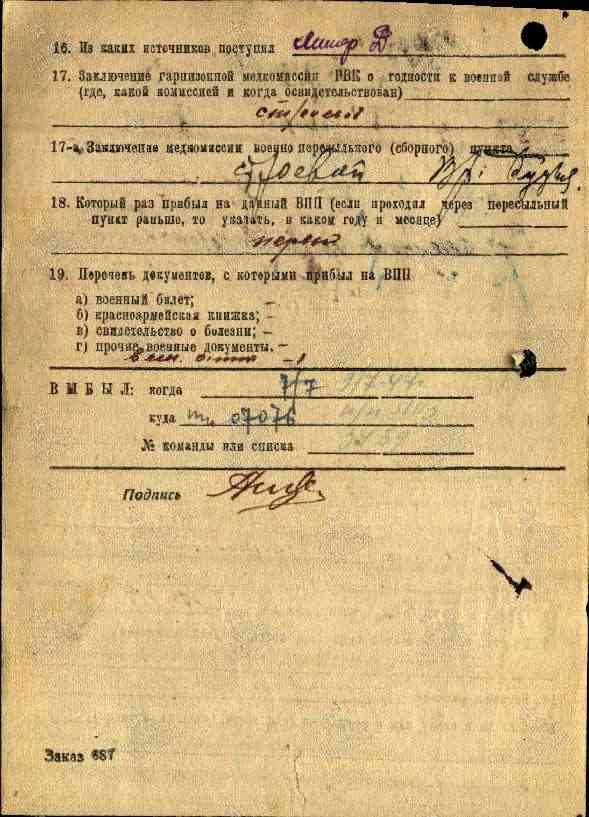 16. Из каких источников поступил
17. Заключение гарнизонной медкомиссии РВК о годности к военной службе
(где, какой комиссией и когда освидетельствован)
строевой
17-а Заключение медкомиссии военно пересыльного (сборного) пункта
строевой
18. Который раз прибыл на данный ВПП (если проходил через пересыльный
пункт раньше, то указать, в каком году и месяце)
первый
19. Перечень документов, с которыми прибыл на ВПП
а) военный билет; —
б) красноармейская книжка; —
в) свидетельство о болезни; —
г) прочие военные документы. —
ВЫБЫЛ: когда 7/7
куда 07076
№ команды или списка
Подпись
Заказ 687